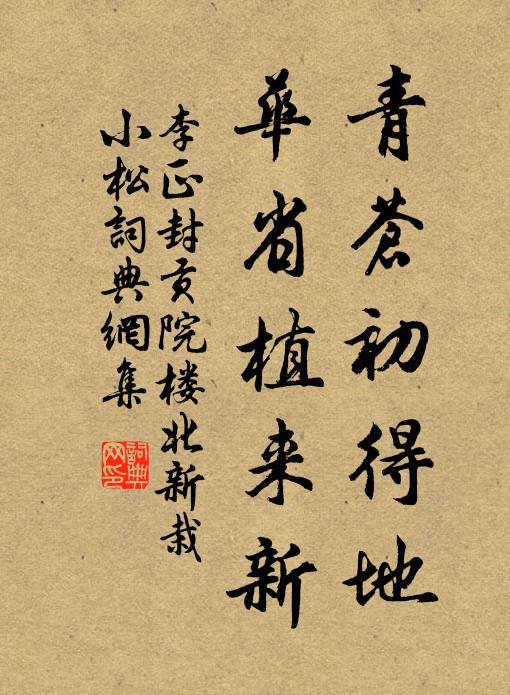 青蒼初得地
華省植来新
李正封貢院楼北新栽
小松詞典網集
詞典
网印